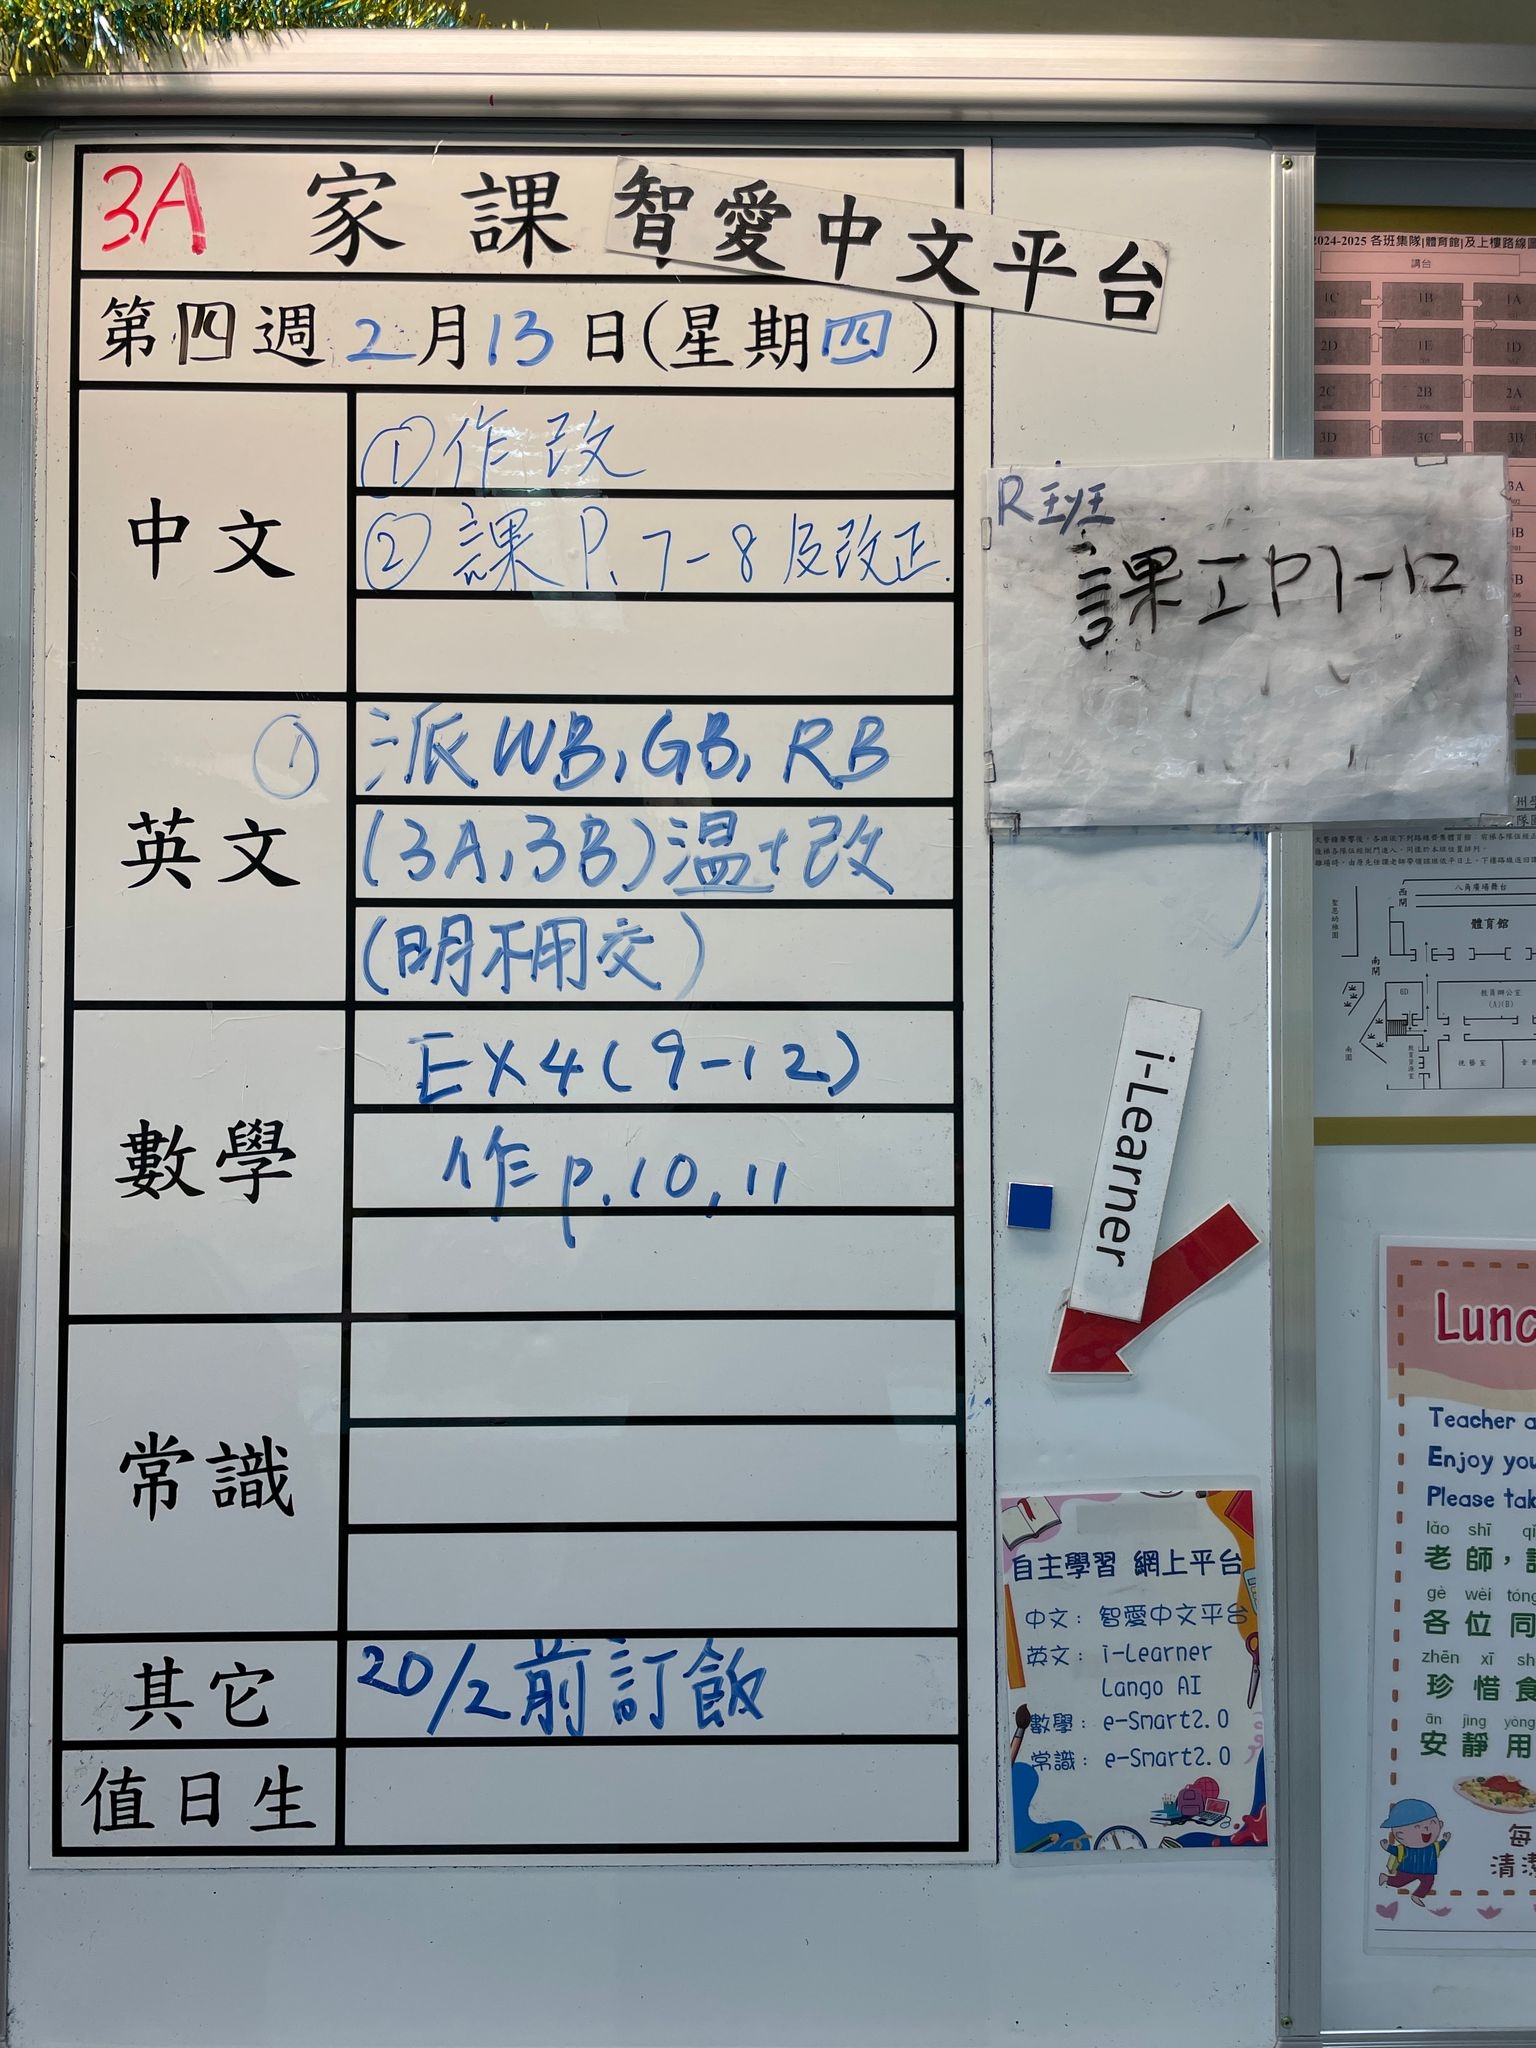 3A 家課 智愛中文平台
第四週 2月13日(星期四)
中文
①作改
②課P.7-8及改正.
R班
課工P7-12
英文
① 派WB, GB, RB
(3A, 3B)温+改
(明不用交)
數學
EX4(9-12)
作p.10, 11
常識
其它
20/2前訂飯
值日生
i-Learner
自主學習 網上平台
中文：智愛中文平台
英文：i-Learner
Lango AI
數學：e-Smart2.0
常識：e-Smart2.0
2024-2025 各班集隊|體育館|及上樓路線圖
講台
1C 1B 1A
2D 1E 1D
2C 2B 2A
3D 3C 3B
八角廣場舞台
西閘
體育館
南閘
6D
教員辦公室
(A)(B)
南園
Lunc
Teacher a
Enjoy you
Please tak
lǎo shī
老師，
gè wèi tóng
各位同
zhēn xī sh
珍惜食
ān jìng yòng
安靜用
每
清潔